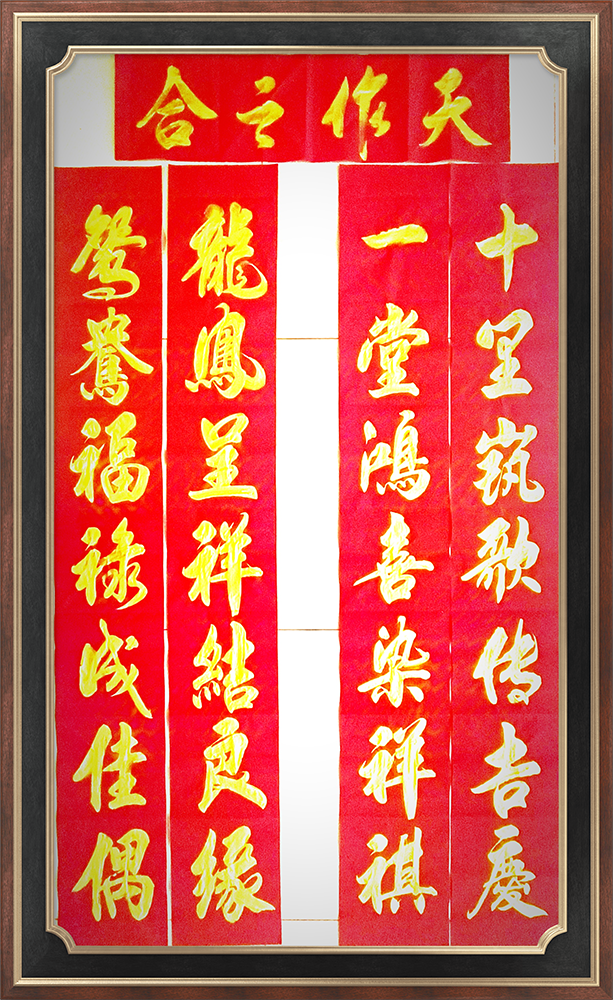 天作之合
十里歌传吉慶
一堂鴻喜染祥祺
龍鳳呈祥結良緣
鴛鴦福禄成佳偶